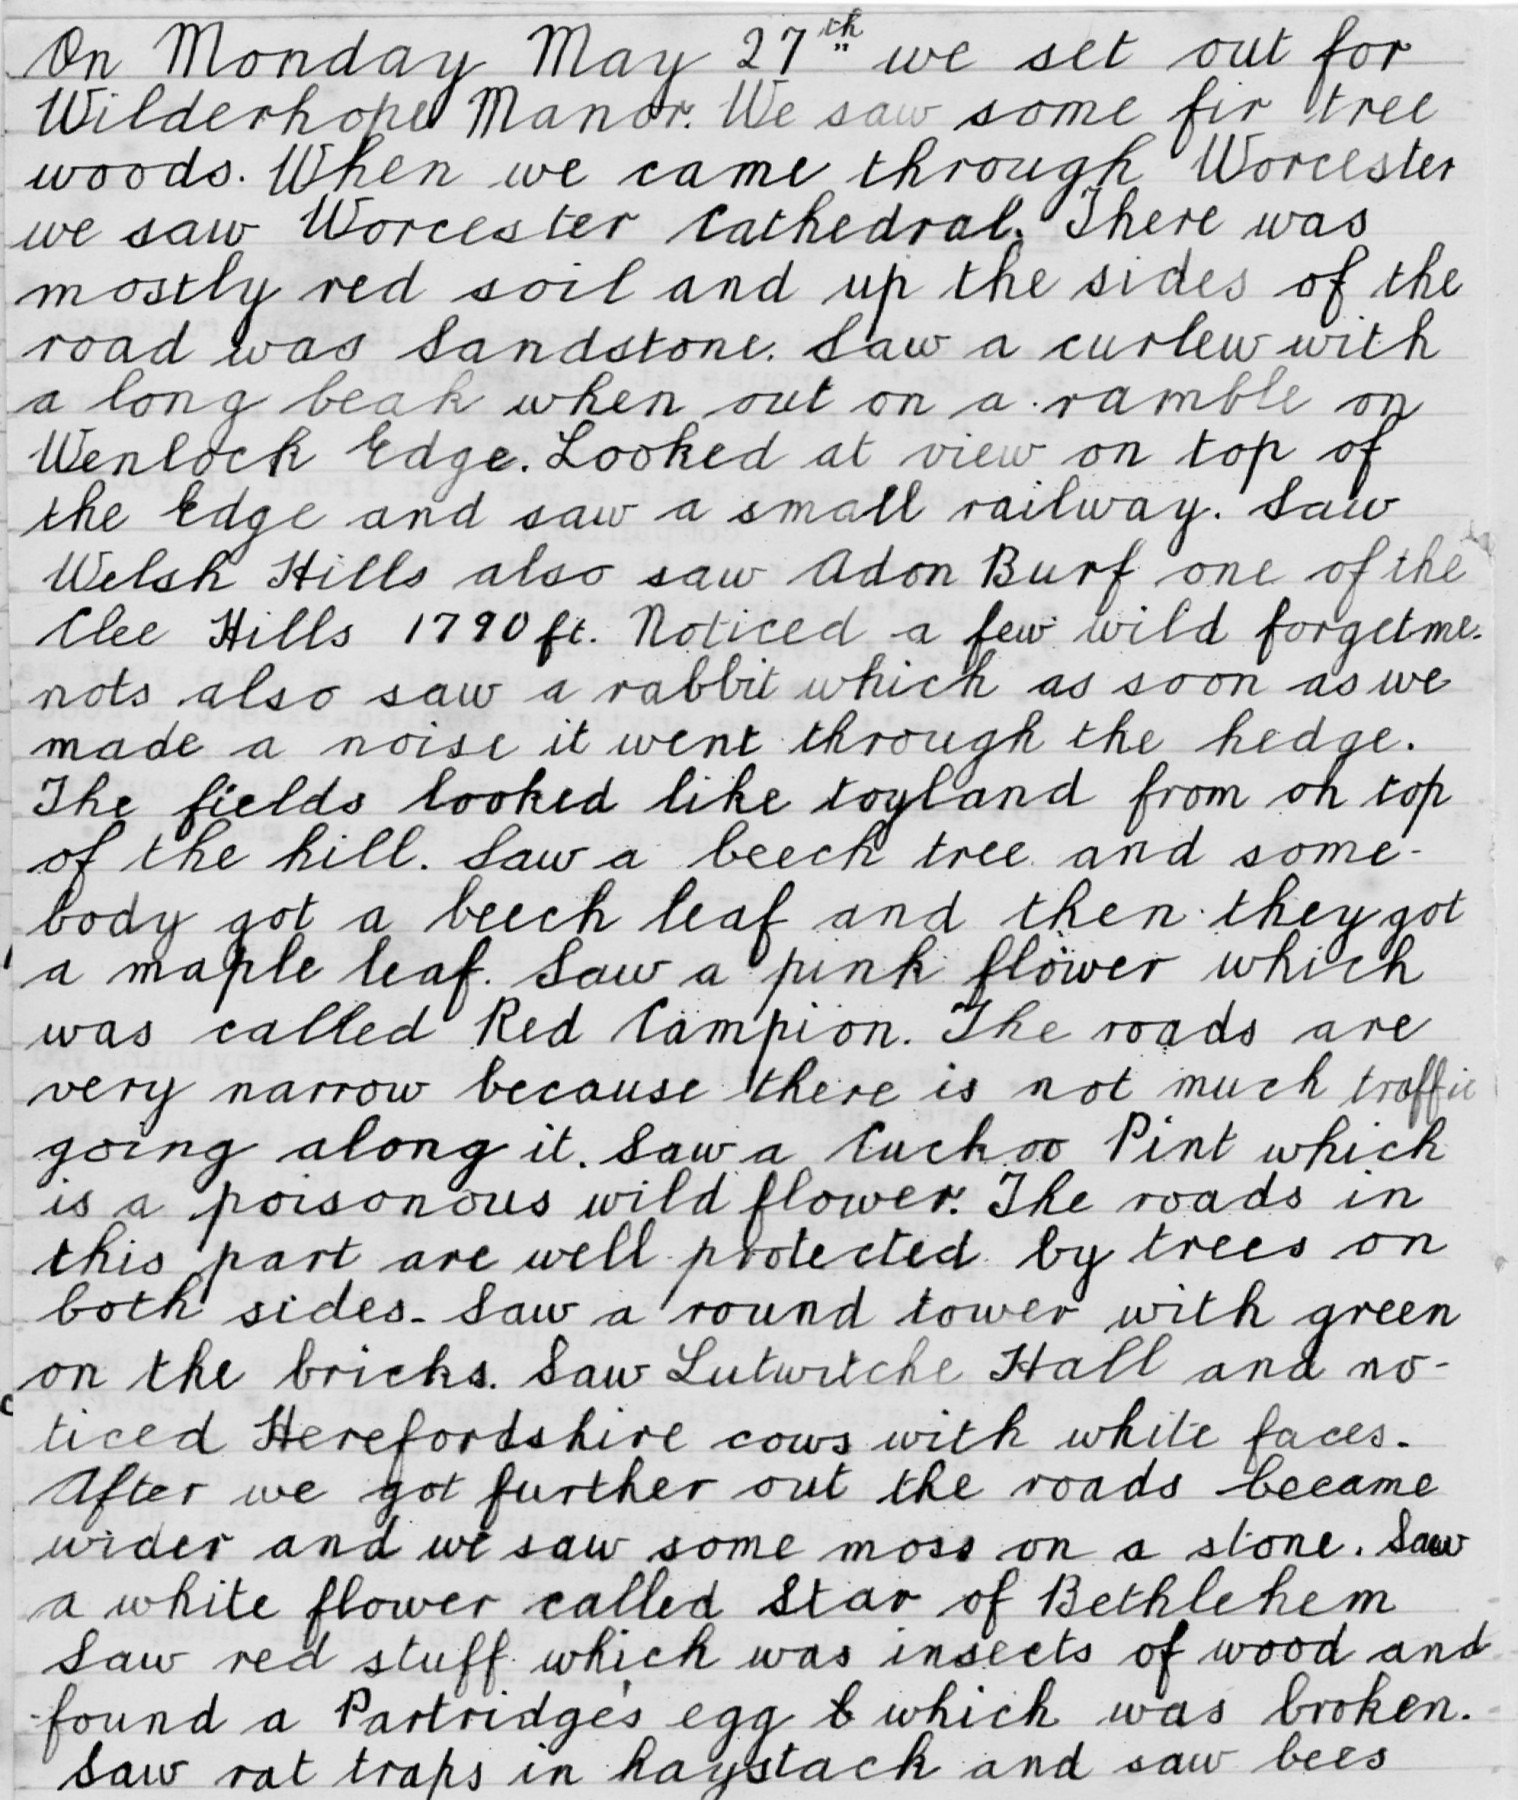 On Monday May 27th we set out for
Wilderhope Manor. We saw some fir tree
woods. When we came through Worcester
we saw Worcester Cathedral. There was
mostly red soil and up the sides of the
road was Sandstone. Saw a curlew with
a long beak when out on a ramble on
Wenlock Edge. Looked at view on top of
the Edge and saw a small railway. Saw
Welsh Hills also saw Adon Burf one of the
Clee Hills 1790 ft. Noticed a few wild forgetme-
nots also saw a rabbit which as soon as we
made a noise it went through the hedge.
The fields looked like toyland from on top
of the hill. Saw a beech tree and some-
body got a beech leaf and then they got
a maple leaf. Saw a pink flower which
was called Red Campion. The roads are
very narrow because there is not much traffic
going along it. Saw a Cuckoo Pint which
is a poisonous wild flower. The roads in
this part are well protected by trees on
both sides. Saw a round tower with green
on the bricks. Saw Lutwitche Hall and no-
ticed Herefordshire cows with white faces.
After we got further out the roads became
wider and we saw some moss on a stone. Saw
a white flower called Star of Bethlehem
Saw red stuff which was insects of wood and
found a Partridge's egg which was broken.
Saw rat traps in haystack and saw bees